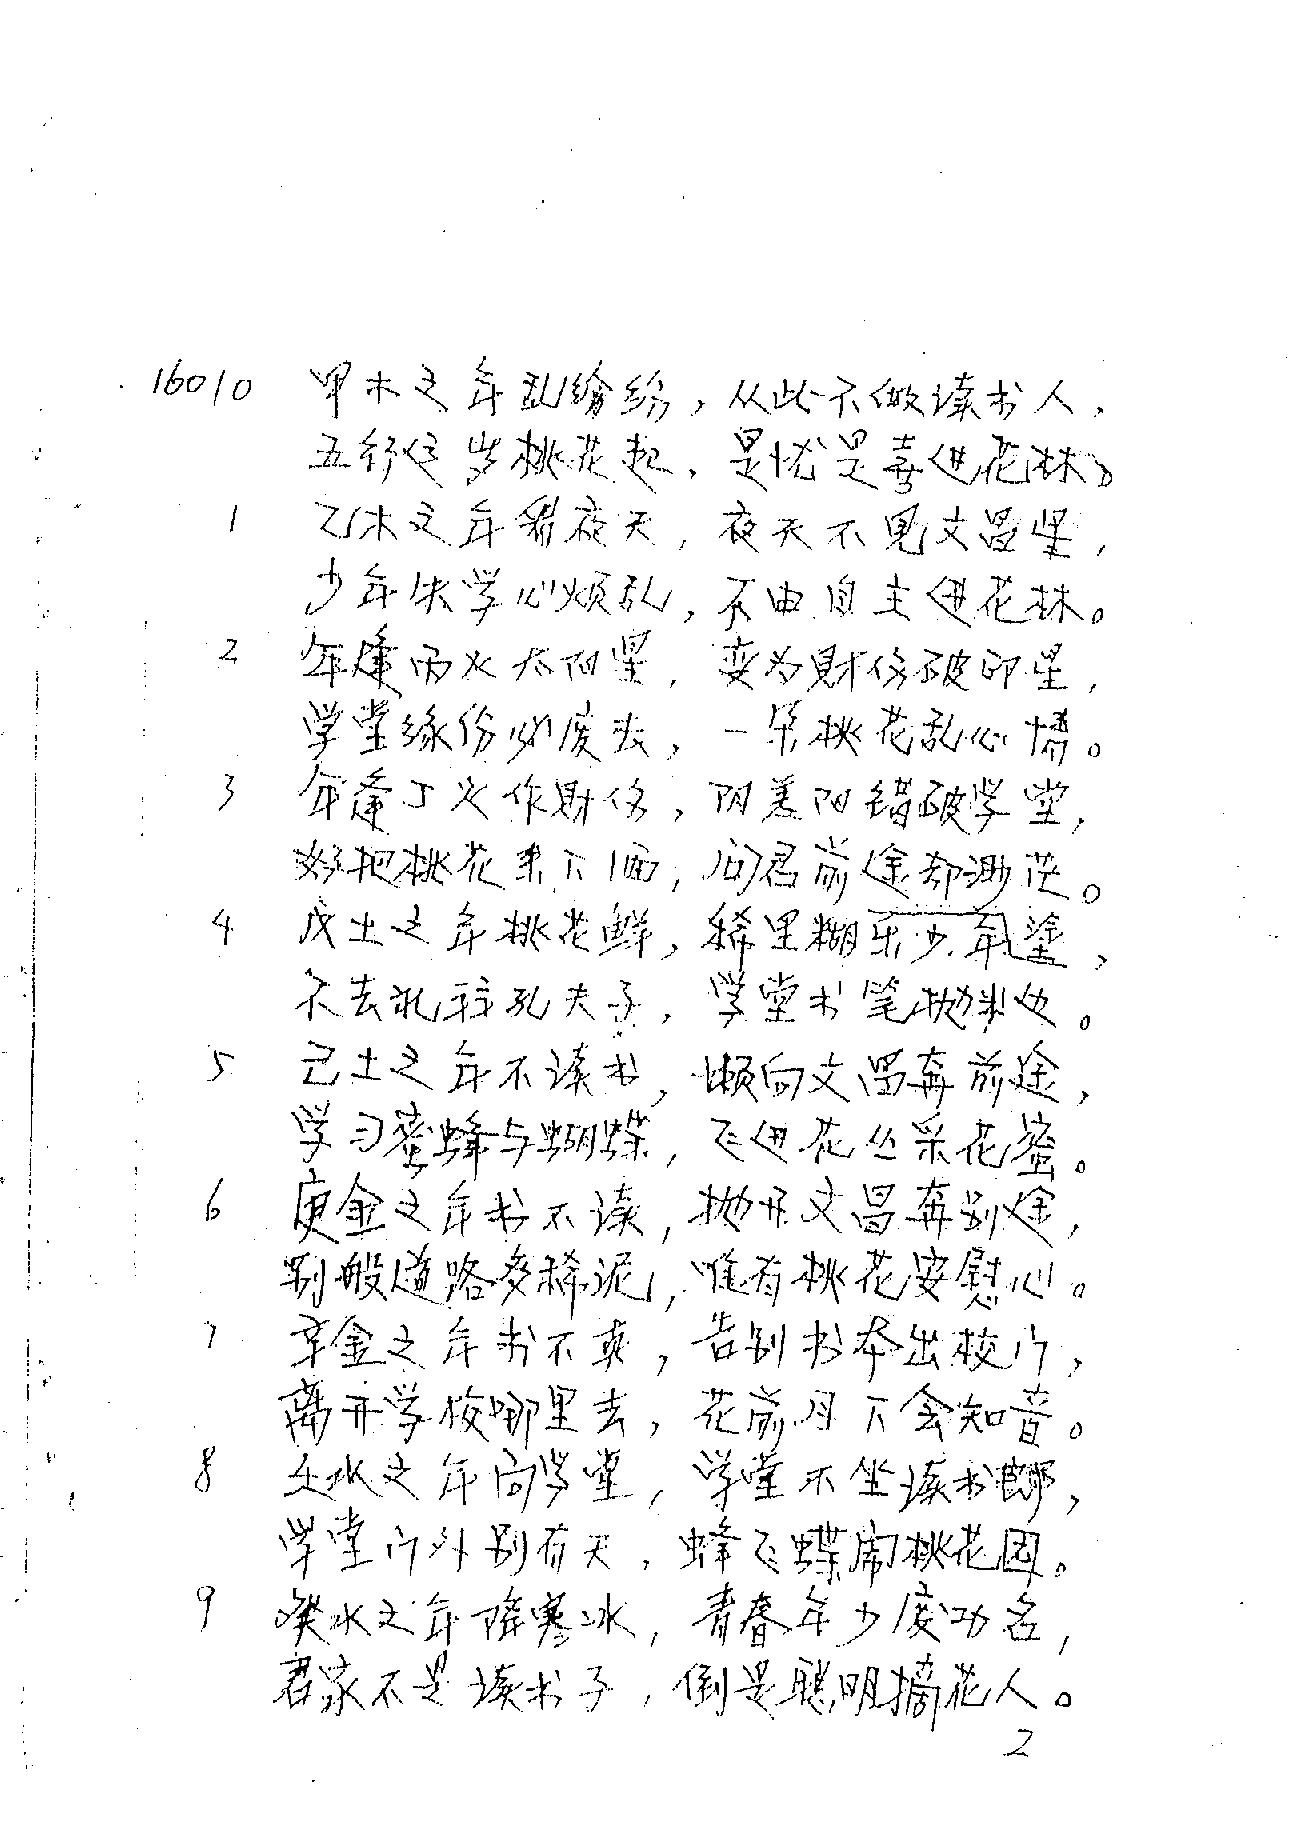 16010 甲木之年乱纷纷，从此不做读书人，
五行这岁桃花起，是忧是喜进花林。
1 乙木之年看夜天，夜天不见文昌星，
少年失学心烦乱，不由自主进花林。
2 年逢丙火太阳星，变为财伤破印星，
学堂缘份必废去，一朵桃花乱心情。
3 年逢丁火作财伤，阴差阳错破学堂，
好把桃花来下酒，问君前途却渺茫。
4 戊土之年桃花鲜，稀里糊乐少年塗，
不去礼拜孔夫子，学堂书笔抛半边。
5 己土之年不读书，懒向文昌奔前途，
学习蜜蜂与蝴蝶，飞进花丛采花蜜。
6 庚金之年书不读，抛开文昌奔别途，
别般道路多稀泥，唯有桃花安慰心。
7 辛金之年书不真，告别书本出校门，
离开学校哪里去，花前月下会知音。
8 壬水之年问学堂，学堂不坐读书郎，
学堂门外别有天，蜂飞蝶闹桃花园。
9 癸水之年降寒冰，青春年少废功名，
君家不是读书子，倒是聪明摘花人。
2